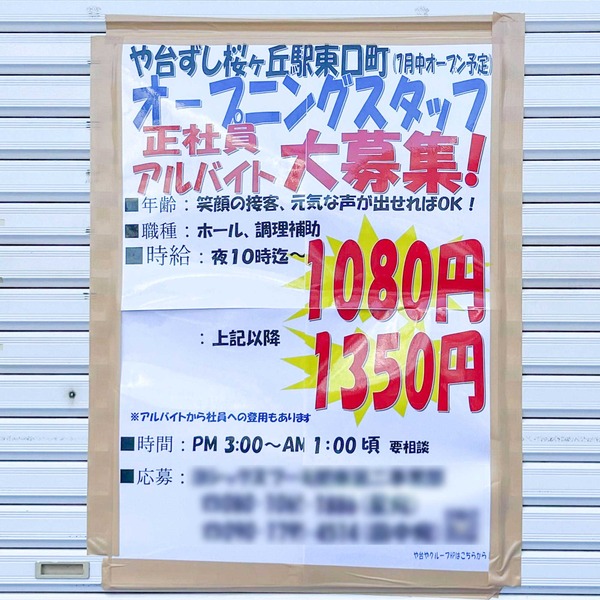 や台ずし桜ヶ丘駅東口町(7月中オープン予定)
オープニングスタッフ
正社員
アルバイト 大募集!
■年齢：笑顔の接客、元気な声が出せればOK！
■職種：ホール、調理補助
■時給：夜10時迄～1080円
：上記以降 1350円
※アルバイトから社員への登用もあります
■時間：PM 3:00～AM 1:00頃 要相談
■応募：
や台やグループHPはこちらから